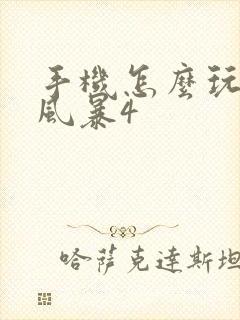 手機怎麼玩
風暴4
哈薩克達斯坦